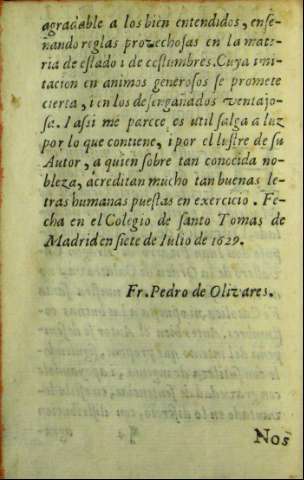 agradable a los bien entendidos, ense-
ñando reglas provechosas en la mate-
ria de estado i de costumbres. Cuya imi-
tacion en animos generosos se promete
cierta, i en los desengañados ventajo-
sa. I assi me parece es util salga a luz
por lo que contiene, i por el lustre de su
Autor, a quien sobre tan conocida no-
bleza, acreditan mucho tan buenas le-
tras humanas puestas en exercicio. Fe-
cha en el Colegio de santo Tomas de
Madrid en siete de Iulio de 1629.
Fr. Pedro de Olivares.
Nos